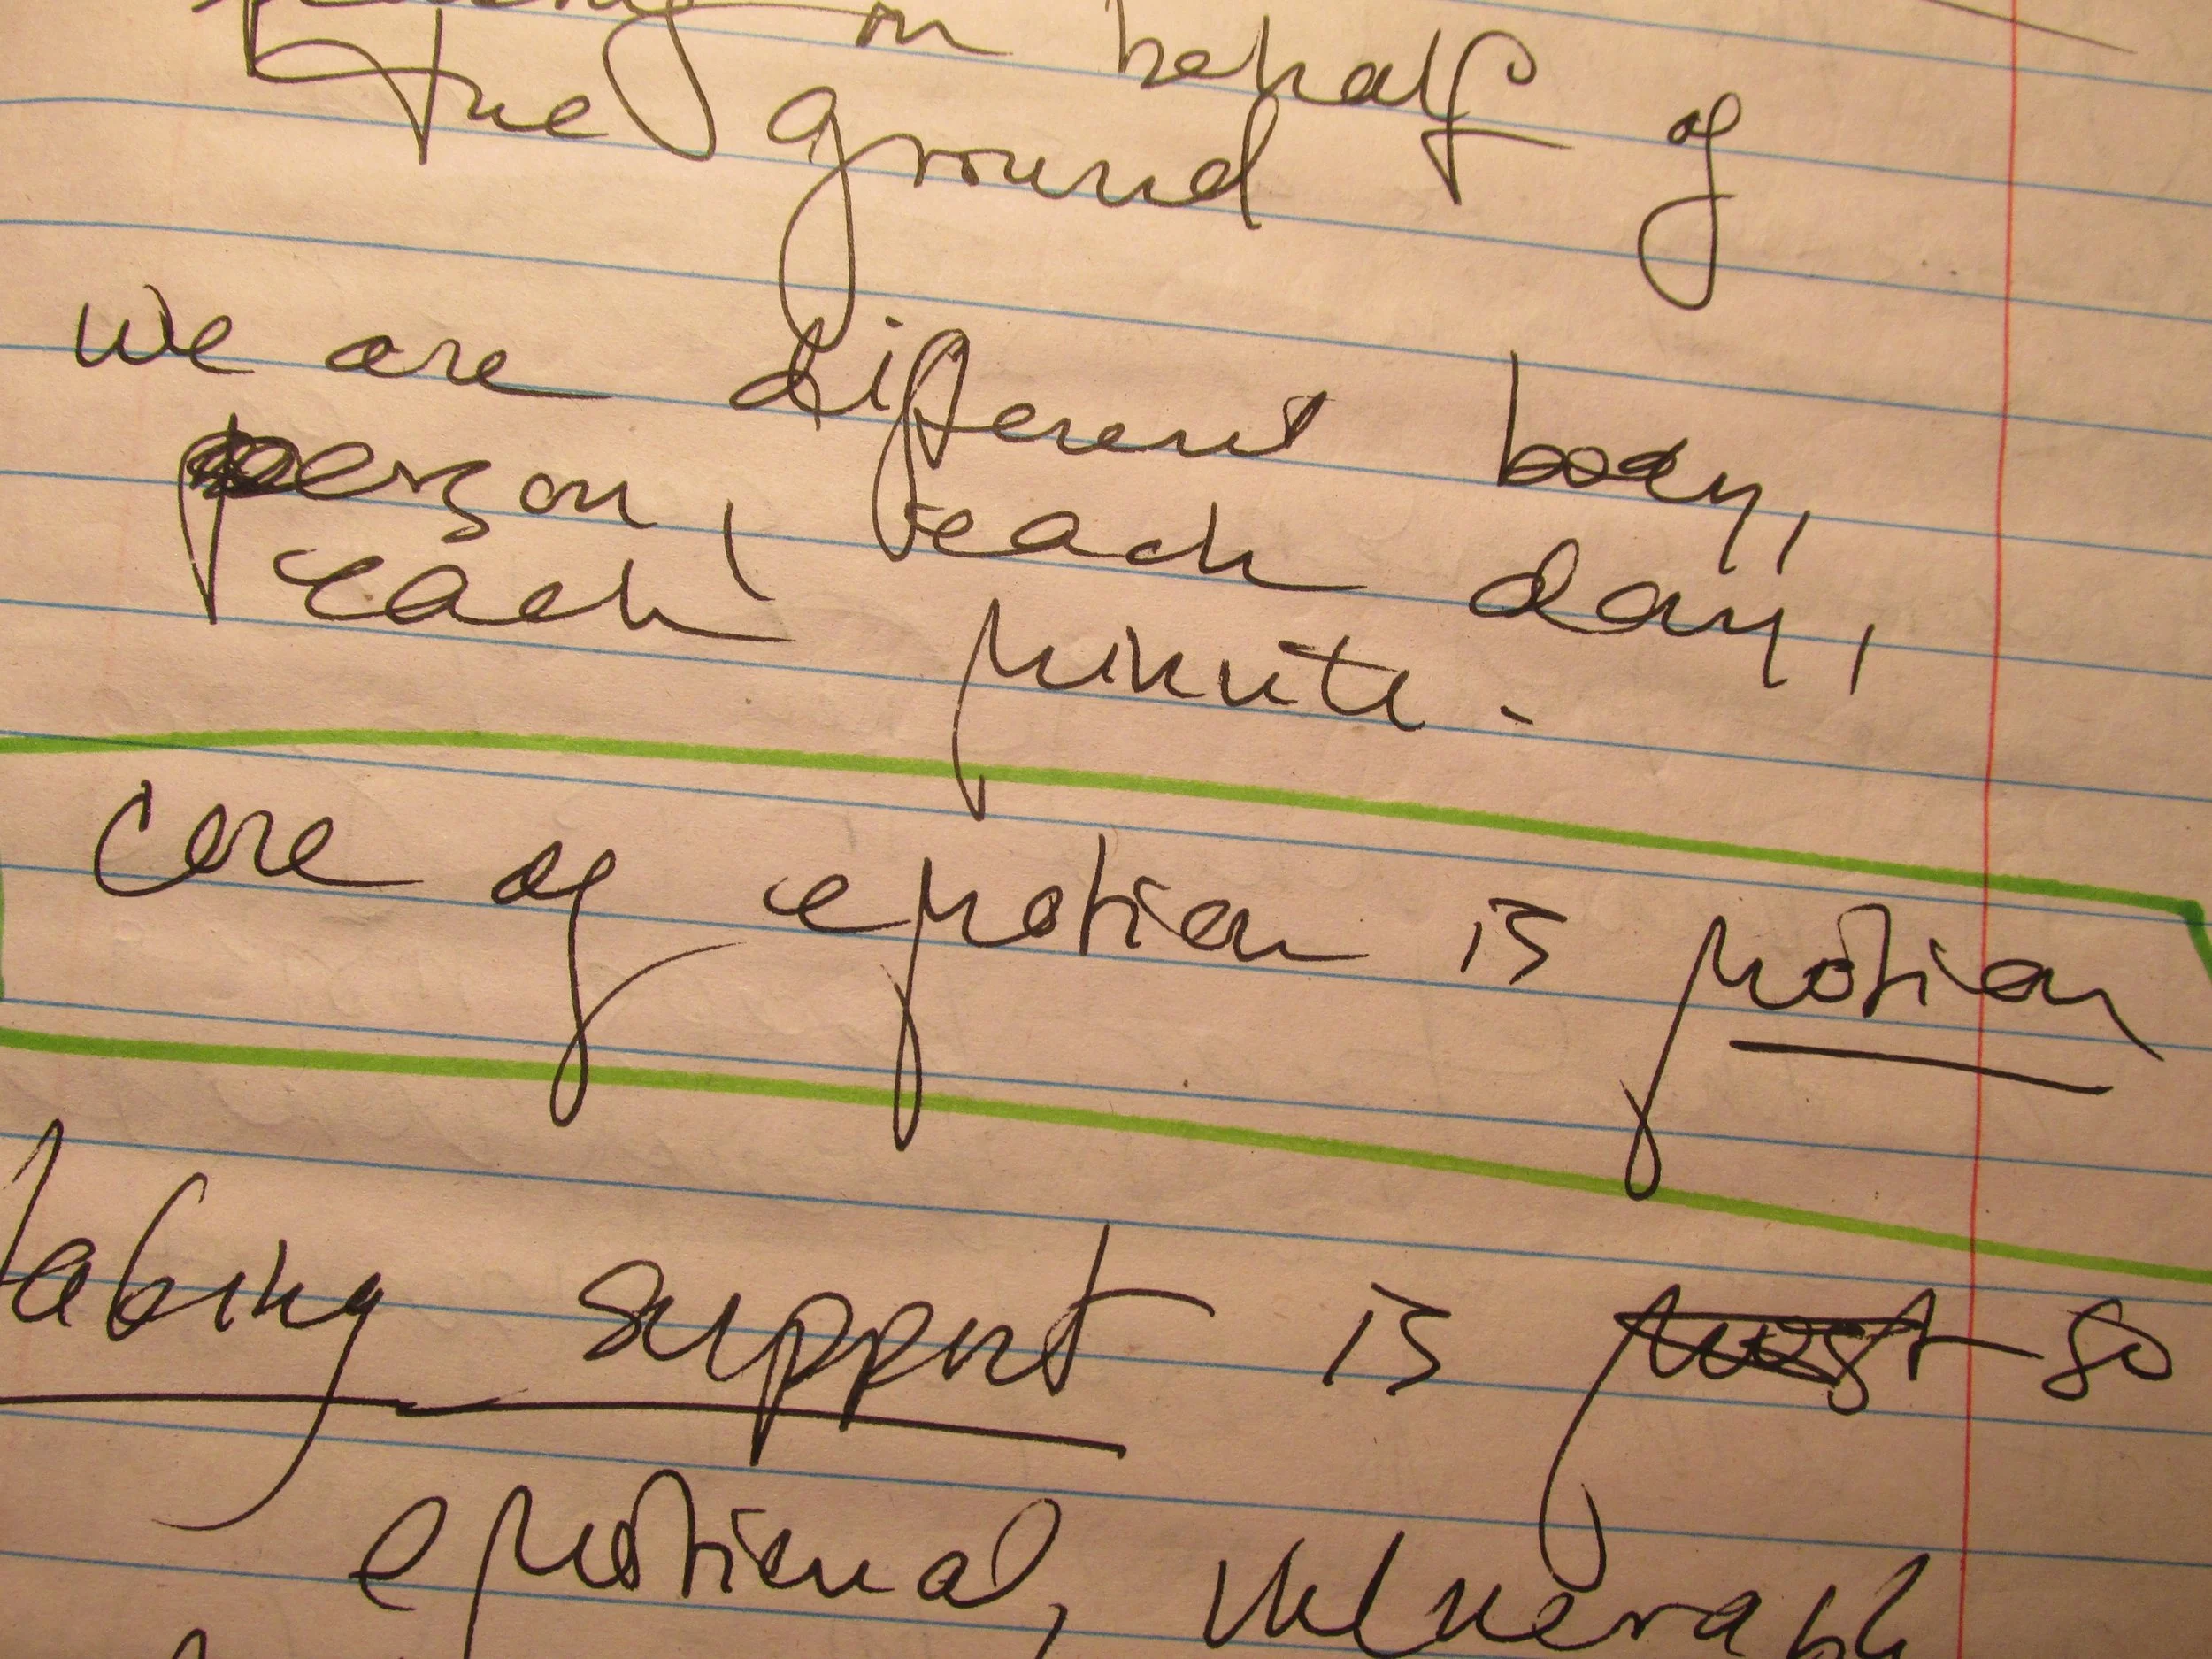 on behalf of
the ground
we are different body,
person, each day,
each minute.
Core of emotion is motion
Taking support is most so
emotional, vulnerable